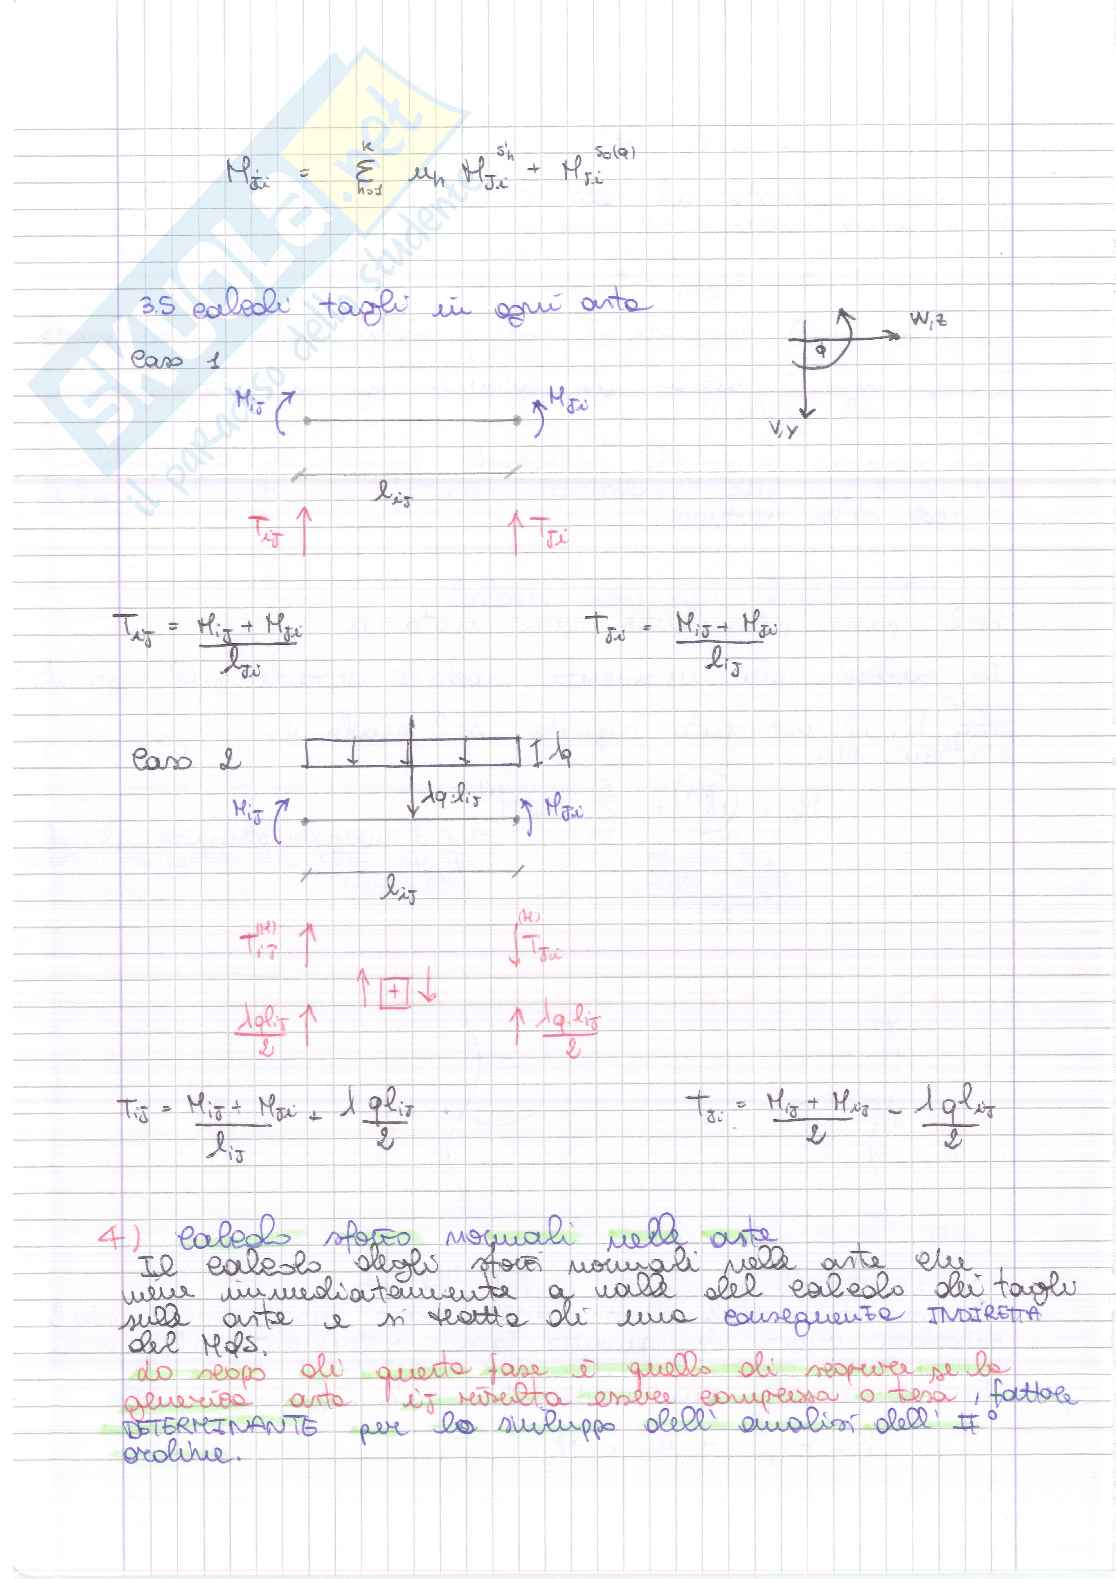 M_ji = Σ_{h=1}^{k} u_h M_ji^{s_h} + M_ji^{s_0(q)}
3.5 calcoli tagli in ogni asta
Caso 1
W,z
φ
V,y
M_ij
M_ji
l_ij
T_ij
T_ji
T_ij = (M_ij + M_ji) / l_ji
T_ji = (M_ij + M_ji) / l_ij
Caso 2
λq
λq·l_ij
M_ij
M_ji
l_ij
T_ij^(M)
T_ji^(M)
+
λql_ij / 2
λq·l_ij / 2
T_ij = (M_ij + M_ji) / l_ij + λ ql_ij / 2
T_ji = (M_ij + M_ij) / 2 - λ ql_ij / 2
4) Calcolo sforzo normali nelle aste
Il calcolo degli sforzi normali nelle aste che
viene immediatamente a valle del calcolo dei tagli
sulle aste e si tratta di una conseguenza INDIRETTA
del MdS.
Lo scopo di questa fase è quello di scoprire se la
generica asta ij risulta essere compressa o tesa, fattore
DETERMINANTE per lo sviluppo dell'analisi dell'II°
ordine.
SKUOLA.net
il paradiso dello studente